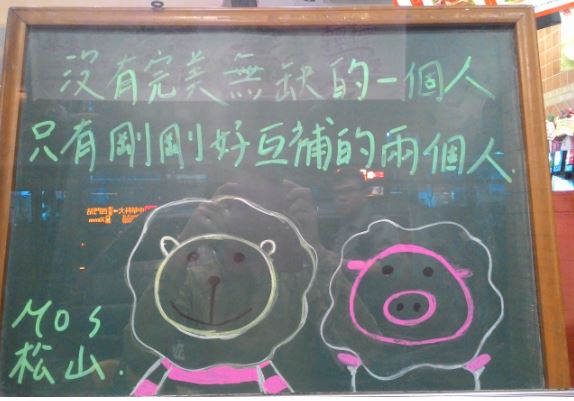 沒有完美無缺的一個人
只有剛剛好互補的兩個人.
MOS
松山.